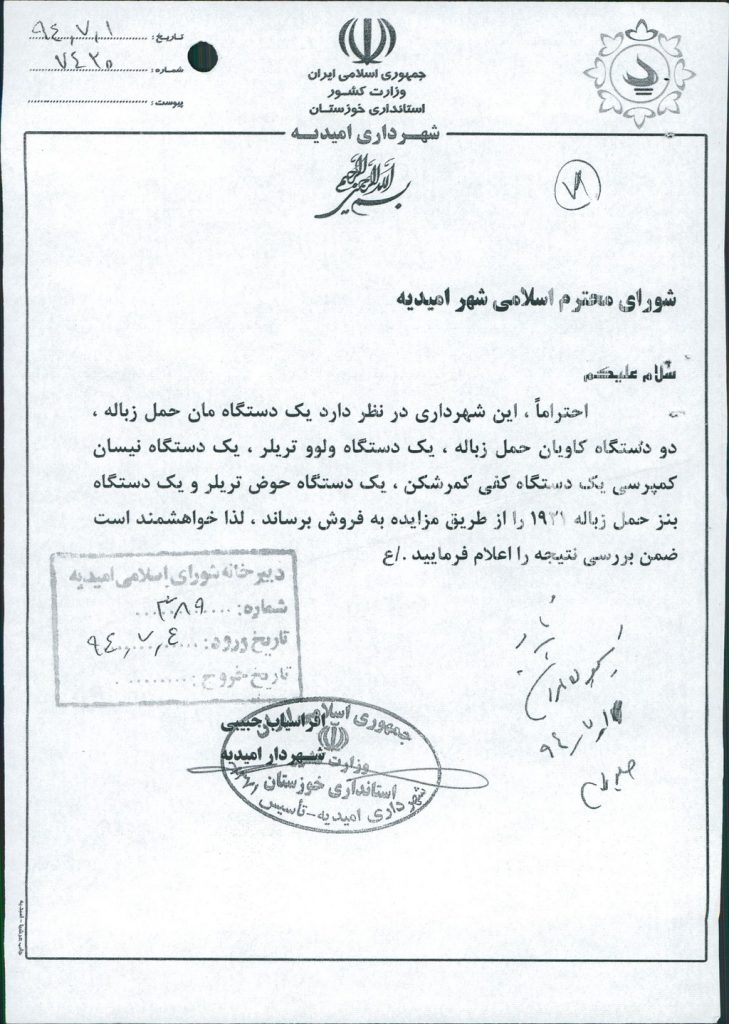 تاریخ : ۹۴,۷,۱
شماره : ۷۴۲۰
پیوست :
جمهوری اسلامی ایران
وزارت کشور
استانداری خوزستان
شهرداری امیدیه
بسم الله الرحمن الرحیم
شورای محترم اسلامی شهر امیدیه
سلام علیکم
احتراماً ، این شهرداری در نظر دارد یک دستگاه مان حمل زباله ،
دو دستگاه کاویان حمل زباله ، یک دستگاه ولوو تریلر ، یک دستگاه نیسان
کمپرسی یک دستگاه کفی کمرشکن ، یک دستگاه حوض تریلر و یک دستگاه
بنز حمل زباله ۱۹۲۱ را از طریق مزایده به فروش برساند ، لذا خواهشمند است
ضمن بررسی نتیجه را اعلام فرمایید ./ع
دبیرخانه شورای اسلامی امیدیه
شماره: ۳۸۹
تاریخ ورود: ۹۴,۷,۴
تاریخ خروج:
افراسیاب حبیبی
شهردار امیدیه
جمهوری اسلامی
وزارت
استانداری خوزستان
شهرداری امیدیه-تأسیس